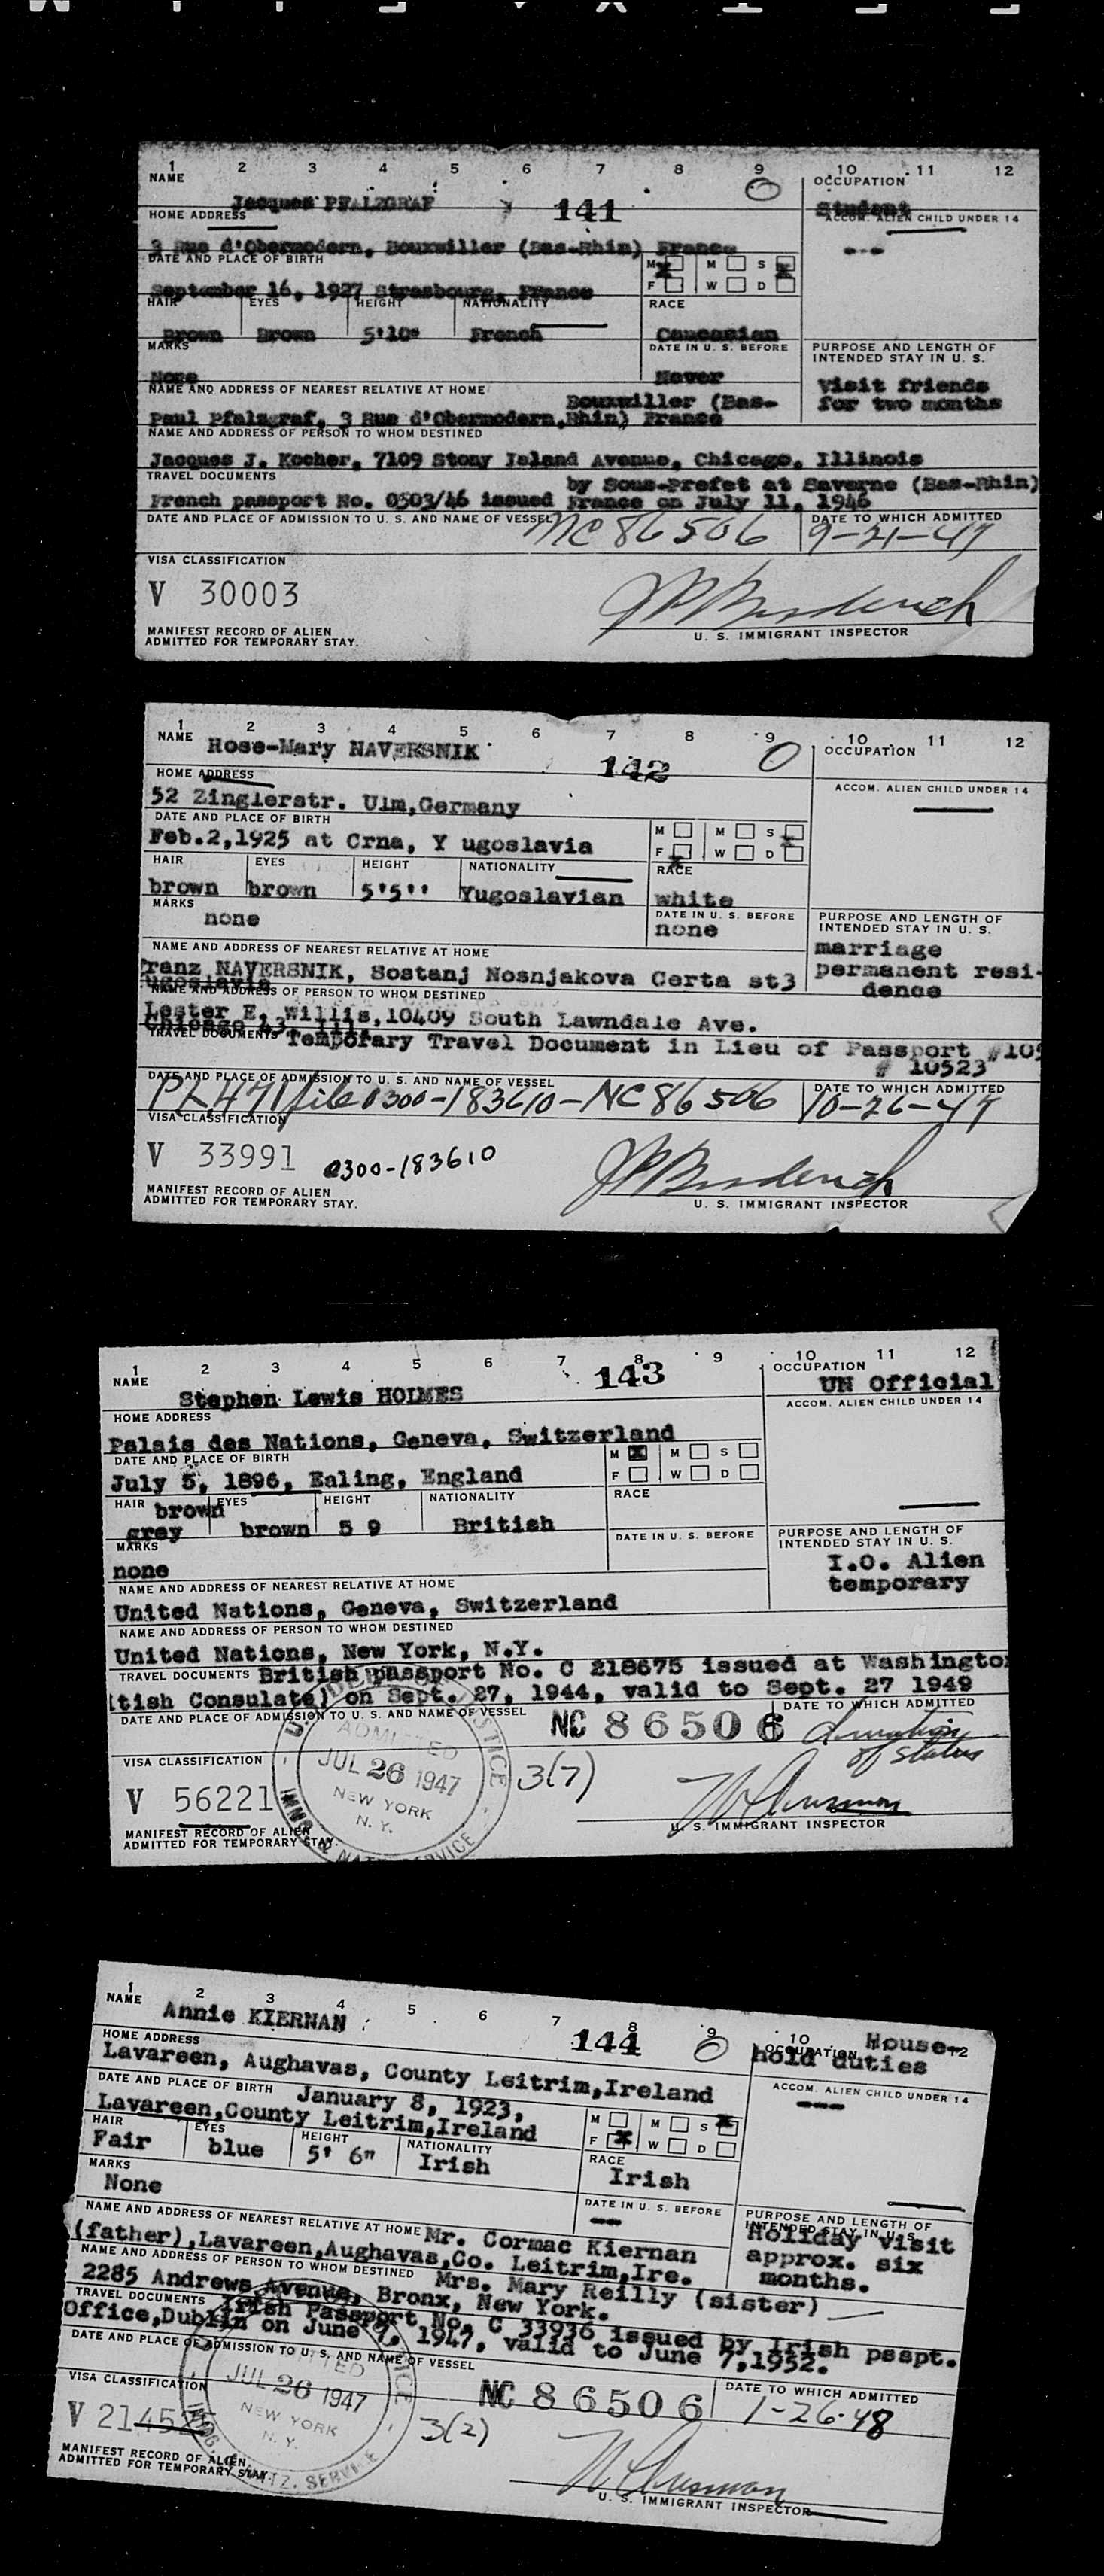 1 2 3 4 5 6 7 8 9 10 11 12
NAME OCCUPATION
Jacques PFALZGRAF 141 Student
HOME ADDRESS ACCOM. ALIEN CHILD UNDER 14
3 Rue d'Obermodern, Bouxwiller (Bas-Rhin) France ---
DATE AND PLACE OF BIRTH M X M S X
September 16, 1927 Strasbourg, France F W D
HAIR EYES HEIGHT NATIONALITY RACE
Brown Brown 5'10" French Caucasian
MARKS DATE IN U. S. BEFORE PURPOSE AND LENGTH OF
INTENDED STAY IN U. S.
None Never Visit friends
NAME AND ADDRESS OF NEAREST RELATIVE AT HOME Bouxwiller (Bas- for two months
Paul Pfalzgraf, 3 Rue d'Obermodern, Rhin) France
NAME AND ADDRESS OF PERSON TO WHOM DESTINED
Jacques J. Kocher, 7109 Stony Island Avenue, Chicago, Illinois
TRAVEL DOCUMENTS by Sous-Prefet at Saverne (Bas-Rhin)
French passport No. 0503/46 issued France on July 11, 1946
DATE AND PLACE OF ADMISSION TO U. S. AND NAME OF VESSEL NC 86506 DATE TO WHICH ADMITTED
9-21-47
VISA CLASSIFICATION
V 30003
U. S. IMMIGRANT INSPECTOR
MANIFEST RECORD OF ALIEN
ADMITTED FOR TEMPORARY STAY.
1 2 3 4 5 6 7 8 9 10 11 12
NAME Rose-Mary NAVERSNIK 142 OCCUPATION
HOME ADDRESS ACCOM. ALIEN CHILD UNDER 14
52 Zinglerstr. Ulm,Germany
DATE AND PLACE OF BIRTH M M S X
Feb.2,1925 at Crna, Y ugoslavia F X W D
HAIR EYES HEIGHT NATIONALITY RACE
brown brown 5'5'' Yugoslavian white
MARKS DATE IN U. S. BEFORE PURPOSE AND LENGTH OF
none none INTENDED STAY IN U. S.
NAME AND ADDRESS OF NEAREST RELATIVE AT HOME marriage
Franz NAVERSNIK, Sostanj Nosnjakova Certa st3 permanent resi-
ugoslavia dence
NAME AND ADDRESS OF PERSON TO WHOM DESTINED
Lester E. Willis,10409 South Lawndale Ave.
Chicago 43, Ill.
TRAVEL DOCUMENTS Temporary Travel Document in Lieu of Passport #105
# 10523
DATE AND PLACE OF ADMISSION TO U. S. AND NAME OF VESSEL DATE TO WHICH ADMITTED
PL471 file 0300-183610-NC 86506 10-26-47
VISA CLASSIFICATION
V 33991 0300-183610
MANIFEST RECORD OF ALIEN
ADMITTED FOR TEMPORARY STAY. U. S. IMMIGRANT INSPECTOR
1 2 3 4 5 6 7 8 9 10 11 12
NAME 143 OCCUPATION
Stephen Lewis HOLMES UN Official
HOME ADDRESS ACCOM. ALIEN CHILD UNDER 14
Palais des Nations, Geneva, Switzerland
DATE AND PLACE OF BIRTH M X M S
July 5, 1896, Ealing, England F W D
HAIR brown EYES HEIGHT NATIONALITY RACE
grey brown 5 9 British
MARKS DATE IN U. S. BEFORE PURPOSE AND LENGTH OF
INTENDED STAY IN U. S.
none I.O. Alien
NAME AND ADDRESS OF NEAREST RELATIVE AT HOME temporary
United Nations, Geneva, Switzerland
NAME AND ADDRESS OF PERSON TO WHOM DESTINED
United Nations, New York, N.Y.
TRAVEL DOCUMENTS British passport No. C 218675 issued at Washington
itish Consulate) on Sept. 27, 1944, valid to Sept. 27 1949
DATE AND PLACE OF ADMISSION TO U. S. AND NAME OF VESSEL NC 86506 DATE TO WHICH ADMITTED
duration of status
ADMITTED
JUL 26 1947
NEW YORK
N. Y.
VISA CLASSIFICATION 3(7)
V 56221
MANIFEST RECORD OF ALIEN
ADMITTED FOR TEMPORARY STAY. U. S. IMMIGRANT INSPECTOR
1 2 3 4 5 6 7 8 9 10 12
NAME Annie KIERNAN 144 OCCUPATION House-
hold duties
HOME ADDRESS ACCOM. ALIEN CHILD UNDER 14
Lavareen, Aughavas, County Leitrim,Ireland ---
DATE AND PLACE OF BIRTH January 8, 1923, M M S X
Lavareen,County Leitrim,Ireland F X W D
HAIR EYES HEIGHT NATIONALITY RACE
Fair blue 5' 6" Irish Irish
MARKS DATE IN U. S. BEFORE PURPOSE AND LENGTH OF
INTENDED STAY IN U. S.
None -- Holiday visit
approx. six
months.
NAME AND ADDRESS OF NEAREST RELATIVE AT HOME Mr. Cormac Kiernan
(father),Lavareen,Aughavas,Co. Leitrim,Ire.
NAME AND ADDRESS OF PERSON TO WHOM DESTINED Mrs. Mary Reilly (sister)
2285 Andrews Avenue, Bronx, New York.
TRAVEL DOCUMENTS Irish Passport No. C 33936 issued by Irish psspt.
Office,Dublin on June 7, 1947, valid to June 7,1952.
DATE AND PLACE OF ADMISSION TO U. S. AND NAME OF VESSEL DATE TO WHICH ADMITTED
NC 86506 1-26-48
JUL 26 1947
NEW YORK
N. Y.
VISA CLASSIFICATION 3(2)
MANIFEST RECORD OF ALIEN
ADMITTED FOR TEMPORARY STAY. U. S. IMMIGRANT INSPECTOR